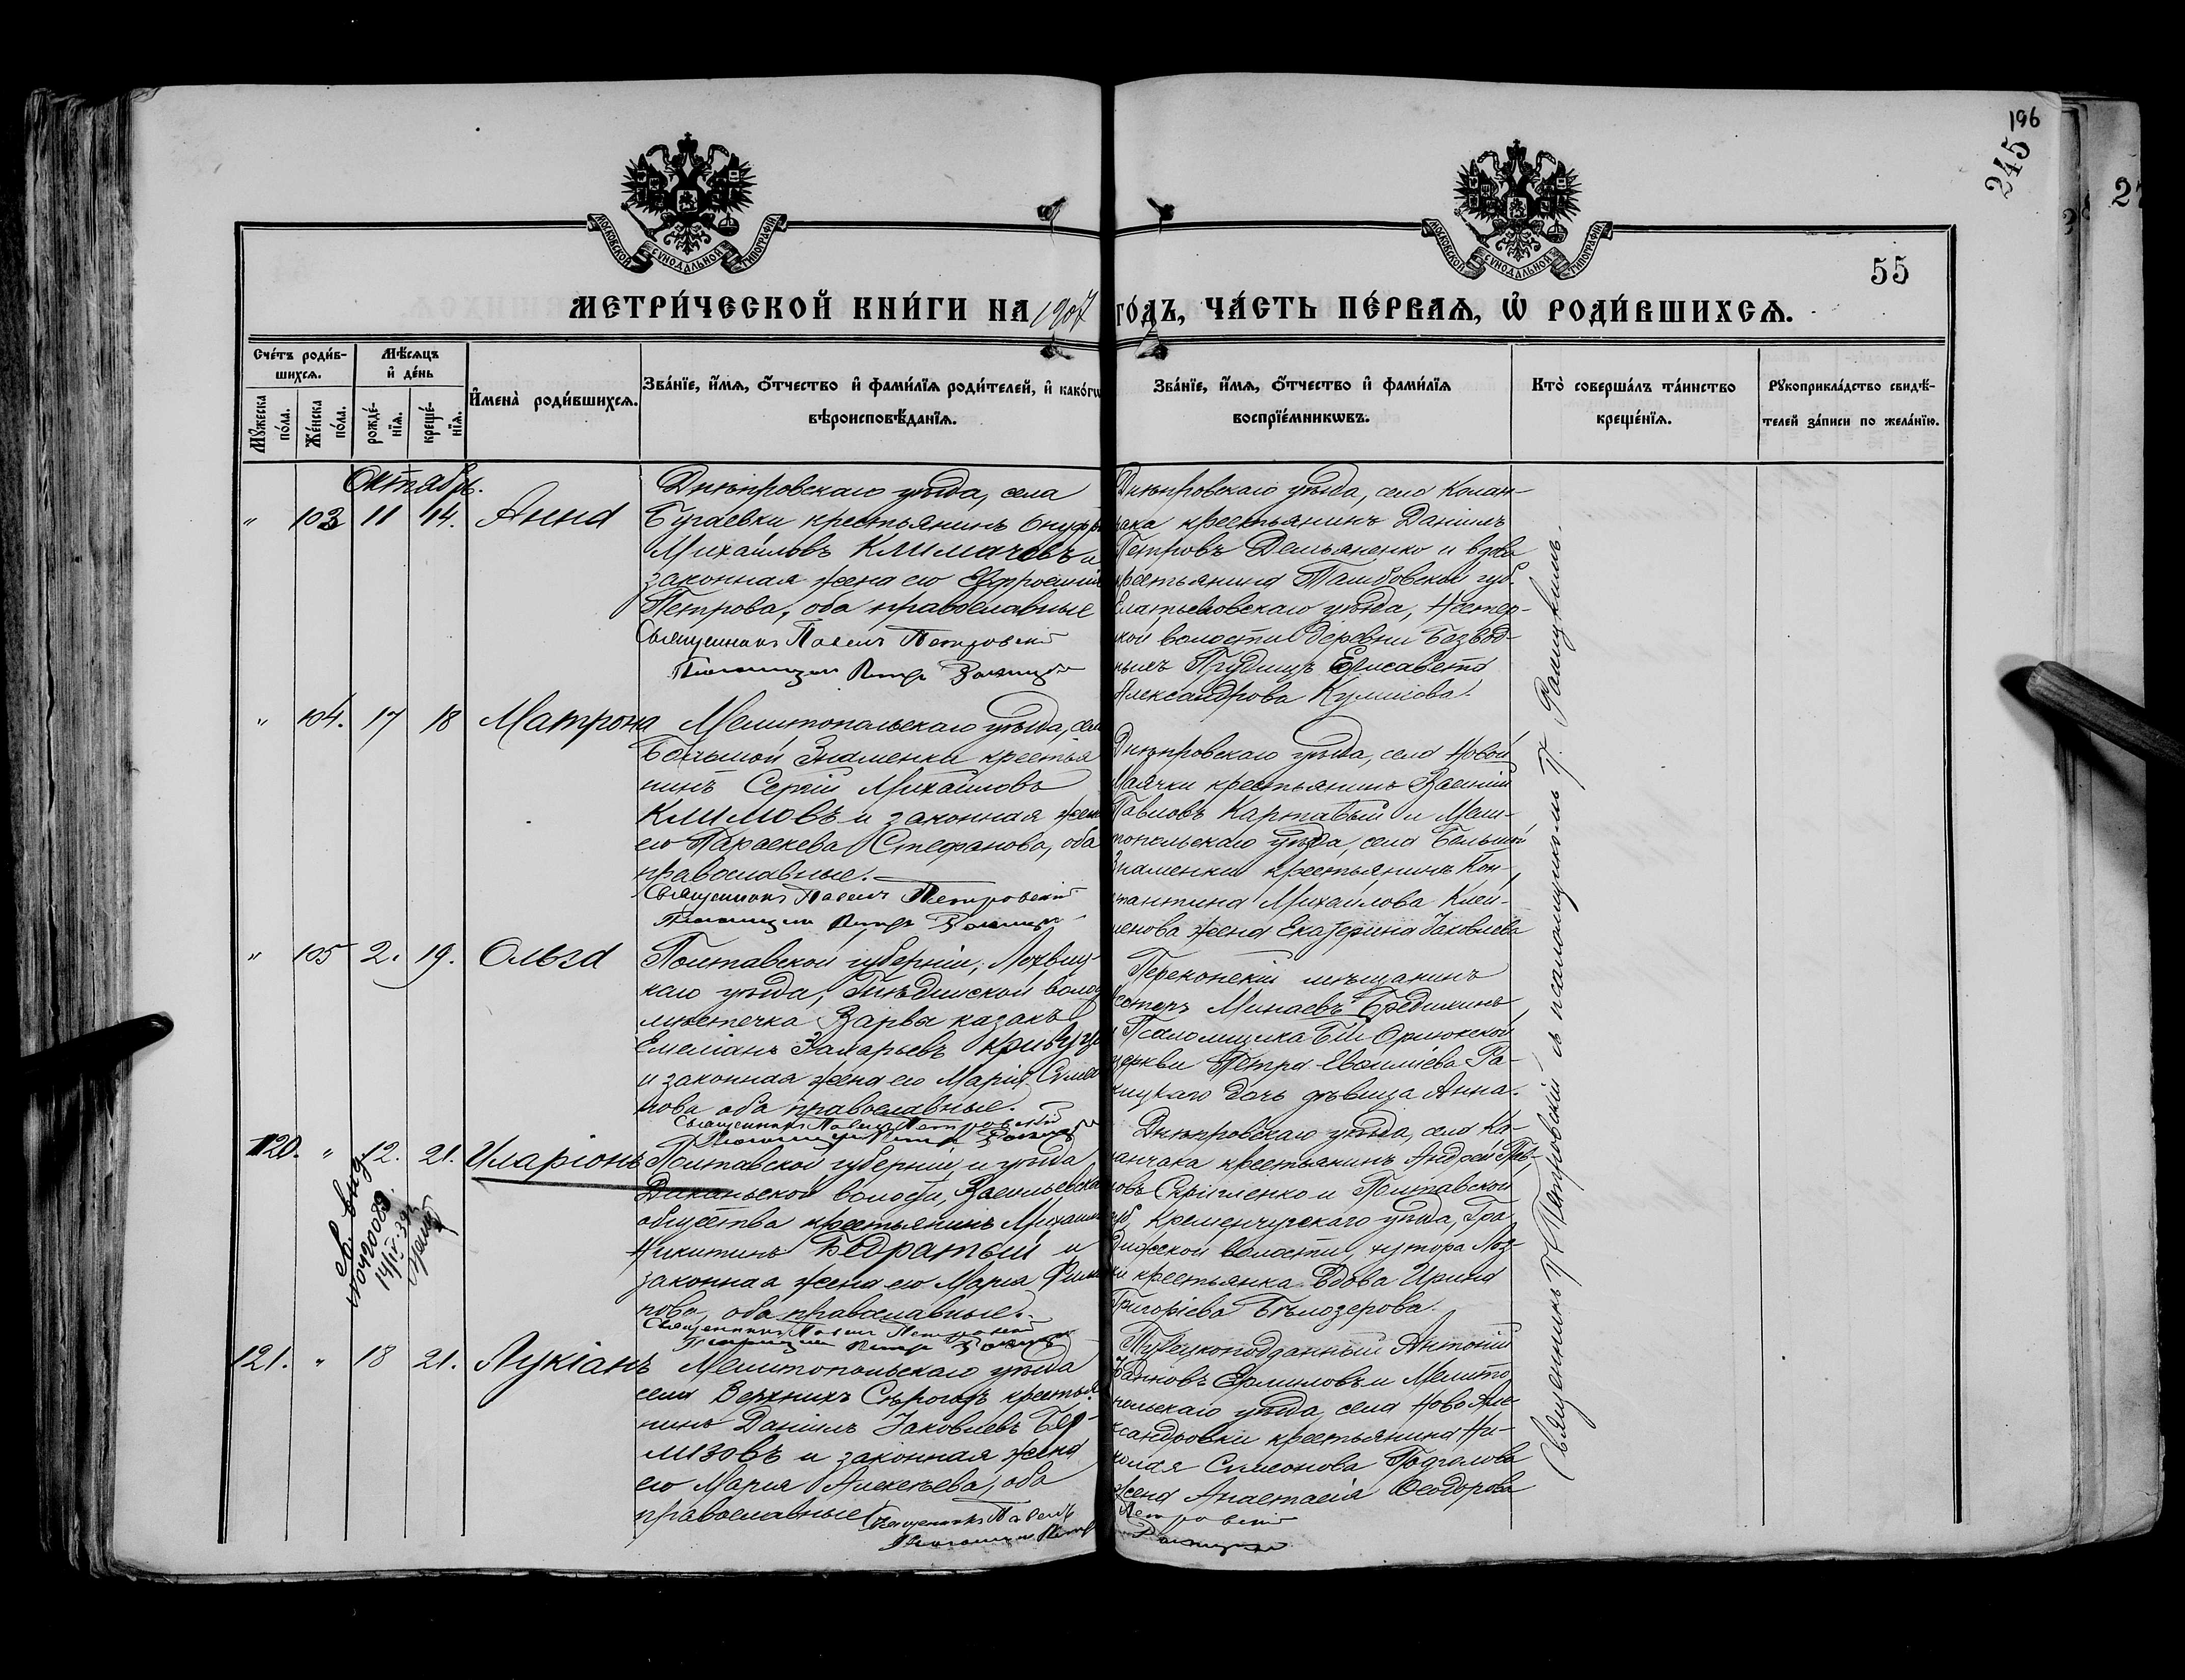 196
245
27
МОСКОВСКОЙ СѴНОДАЛЬНОЙ ТИПОГРАФІИ
МОСКОВСКОЙ СѴНОДАЛЬНОЙ ТИПОГРАФІИ
55
МЕТРИ́ЧЕСКОЙ КНИ́ГИ НА 1907 ГО́ДЪ, ЧА́СТЬ ПЕ́РВАѦ, Ѡ҆ РОДИ́ВШИХСѦ.
Сче́тъ роди́в-
шихсѧ.
Мꙋ́жеска
по́ла.
Же́нска
по́ла.
Мѣ́сѧцъ
и҆ де́нь
рожде́-
нїѧ.
креще́-
нїѧ.
И҆мена̀ роди́вшихсѧ.
Зва́нїе, и҆́мѧ, ѻ҆́тчество и҆ фами́лїѧ роди́телей, и҆ како́гѡ
вѣроисповѣ́данїѧ.
Зва́нїе, и҆́мѧ, ѻ҆́тчество и҆ фами́лїѧ
воспрїе́мникѡвъ.
Кто̀ соверша́лъ та́инство
креще́нїѧ.
Рꙋкоприкла́дство свидѣ́-
телей за́писи по жела́нїю.
Октябрь.
" 103 11 14. Анна
Днѣпровскаго уѣзда, села
Бугаевки крестьянинъ Онуфрі
Михаиловъ Климачевъ и
законная жена его Евфросинія
Петрова, оба православные
Священникъ Павелъ Петровскій
Псаломщикъ Петръ
Днѣпровскаго уѣзда, села Калан-
чака крестьянинъ Даніилъ
Петровъ Демьяненко и вдова
крестьянина Тамбовской губ.
Елатьмовскаго уѣзда,
кой волости деревни Безвод-
ныхъ Прудищъ Елисавета
Александрова Куликова.
" 104. 17 18 Матрона
Мелитопольскаго уѣзда, села
Большой Знаменки крестья
нинъ Сергій Михаиловъ
Климовъ и законная жена
его Параскева Стефанова, оба
православные.
Священникъ Павелъ Петровскій
Псаломщикъ Петръ
Днѣпровскаго уѣзда, села Новой
Маячки крестьянинъ Василій
Павловъ Картавый и Мели-
топольскаго уѣзда, села Большой
Знаменки крестьянина Кон-
стантина Михаилова Клей-
менова жена Екатерина Іаковлева
" 105 2. 19. Ольга
Полтавской губерніи, Лохвиц-
каго уѣзда, Гнѣдинской волос
мѣстечка Варвы казакъ
Емеліанъ Захарьевъ
и законная жена его Марія Симе
нова оба православные.
Священникъ Павелъ Петровскій
Псаломщикъ Петръ
Перекопскій мѣщанинъ
Несторъ Минаевъ Бредихинъ
и Псаломщика
церкви Петра Евѳиміева Ра-
кицкаго дочь дѣвица Анна.
120. " 12. 21. Иларіонъ
Св. выд.
№ 0420089.
14/IV-39г.
Полтавской губерніи и уѣзда
Диканьской волости, Васильевска
общества крестьянинъ Михаилъ
Никитинъ Бедратый и
законная жена его Марія Фили
пова, оба православные.
Священникъ Павелъ Петровскій
Псаломщикъ Петръ
Днѣпровскаго уѣзда, села Ка-
ланчака крестьянинъ Андрей Пав-
ловъ Скригленко и Полтавской
губ. Кременчугскаго уѣзда, Гра-
дижской волости, хутора Лоз-
ки крестьянка вдова Ирина
Григоріева Бѣлозерова.
121. " 18 21. Лукіанъ
Мелитопольскаго уѣзда
села Верхнихъ Сѣрогозъ крестья
нинъ Даніилъ Іаковлевъ Бер-
лизовъ и законная жена
его Марія Алексѣева, оба
православные Священникъ Павелъ
Псаломщикъ Петръ
Турецкоподданный Антоній
Ивановъ Ермиловъ и Мелито
польскаго уѣзда, села Ново Але-
ксандровки крестьянина Ни-
колая Симеонова Подгалова
жена Анастасія Ѳеодорова
Петровскій
Священникъ П. Петровскій съ псаломщикомъ П. Ракицкимъ.